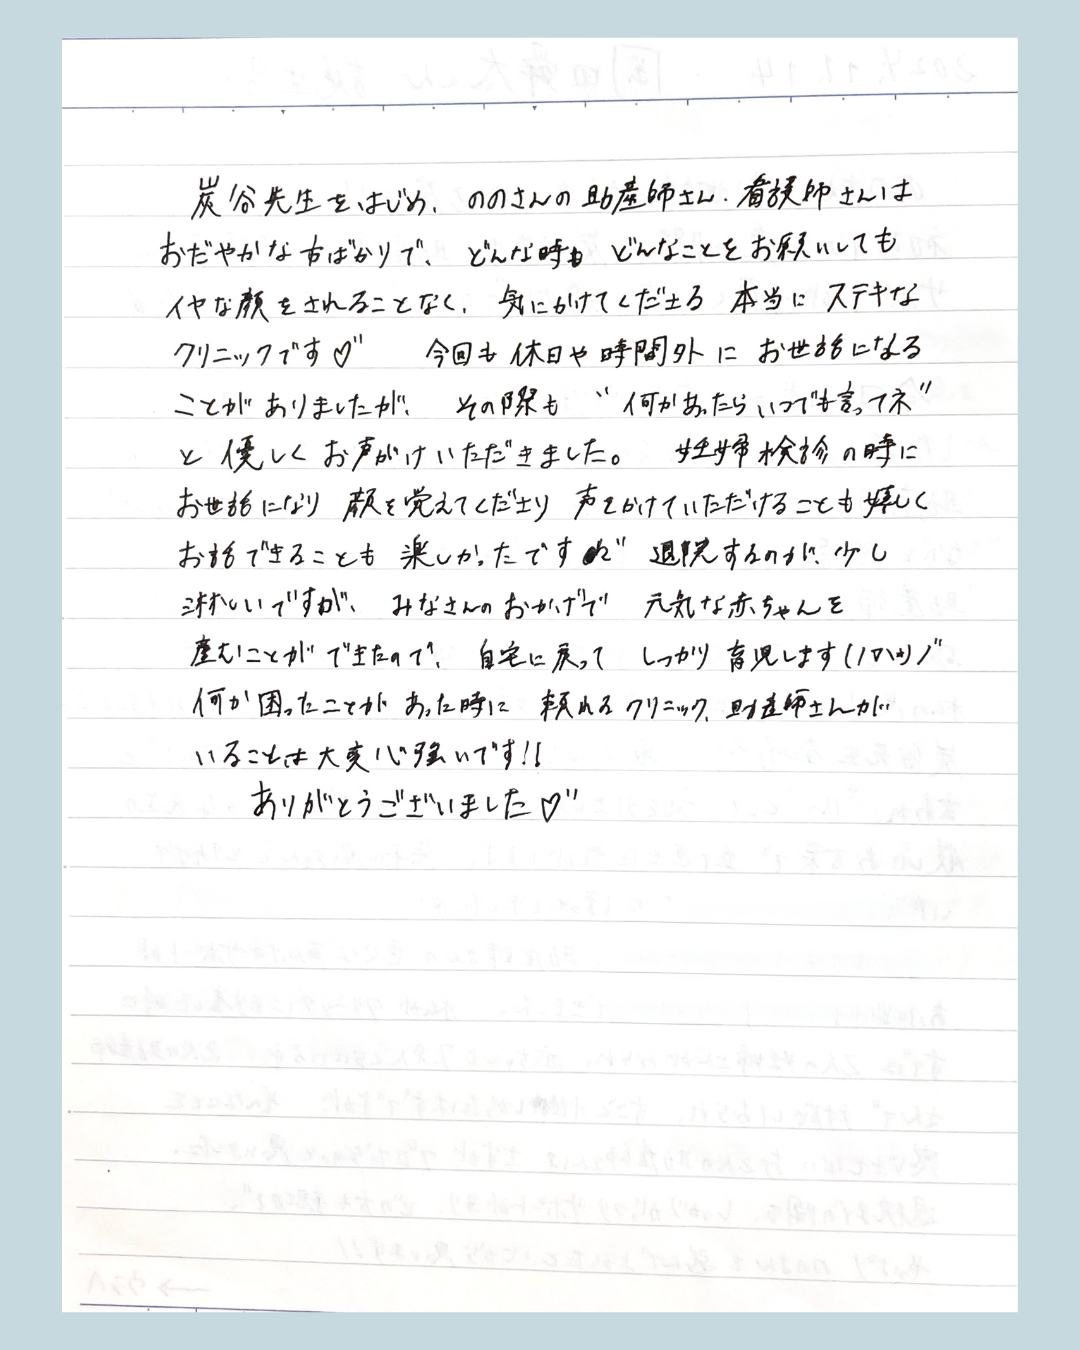 炭谷先生をはじめ、ののさんの助産師さん、看護師さんは
おだやかな方ばかりで、どんな時も どんなことをお願いしても
イヤな顔をされることなく、気にかけてくださる 本当に ステキな
クリニックです♡" 今回も 休日や時間外に お世話になる
ことが ありましたが、その際も "何かあったら いつでも言ってネ"
と 優しく お声がけ いただきました。 妊婦検診の時に
お世話になり 顔を覚えてくださり 声をかけていただけることも嬉しく
お話できることも 楽しかったです 退院するのが、少し
淋しいですが、みなさんのおかげで 元気な赤ちゃんを
産むことが できたので、自宅に戻って しっかり 育児します
何か困ったことが あった時に 頼れる クリニック、助産師さんが
いることは 大変 心強いです!!
ありがとうございました♡"